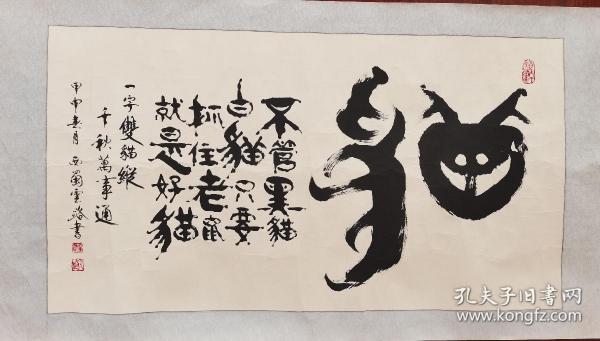 貓
不管黑貓
白貓只要
抓住老鼠
就是好貓
一字雙貓縱
千秋萬事通
甲申春月 西蜀雲書
孔夫子旧書网
www.kongfz.com